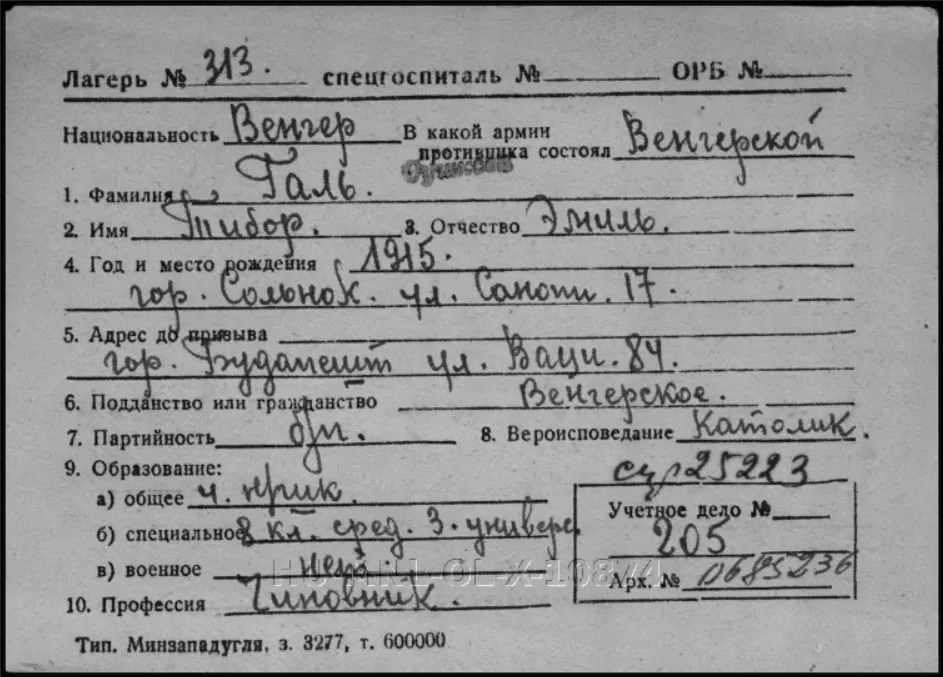 Лагерь № 313. спецгоспиталь № ОРБ №
Национальность Венгер В какой армии
противника состоял Венгерской
1. Фамилия Галь.
2. Имя Тибор. 3. Отчество Эмиль.
4. Год и место рождения 1915.
гор. Сольнок. ул. Сапопи. 17.
5. Адрес до призыва
гор. Будапешт ул. Ваци. 84.
6. Подданство или гражданство Венгерское.
7. Партийность б/п. 8. Вероисповедание Католик.
9. Образование:
25223
а) общее 4.
Учетное дело №
б) специальное 8 кл. сред. 3. универс.
205
в) военное нет
Арх. № 0685236
HU-MNL-OL-X-10874
10. Профессия Чиновник.
Тип. Минзападугля, з. 3277, т. 600000